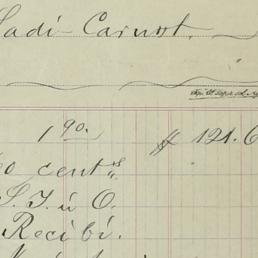 Sadi-Carnot.
190. $ 121.6
o cent^s.
S. I. ú O.
Recibí.